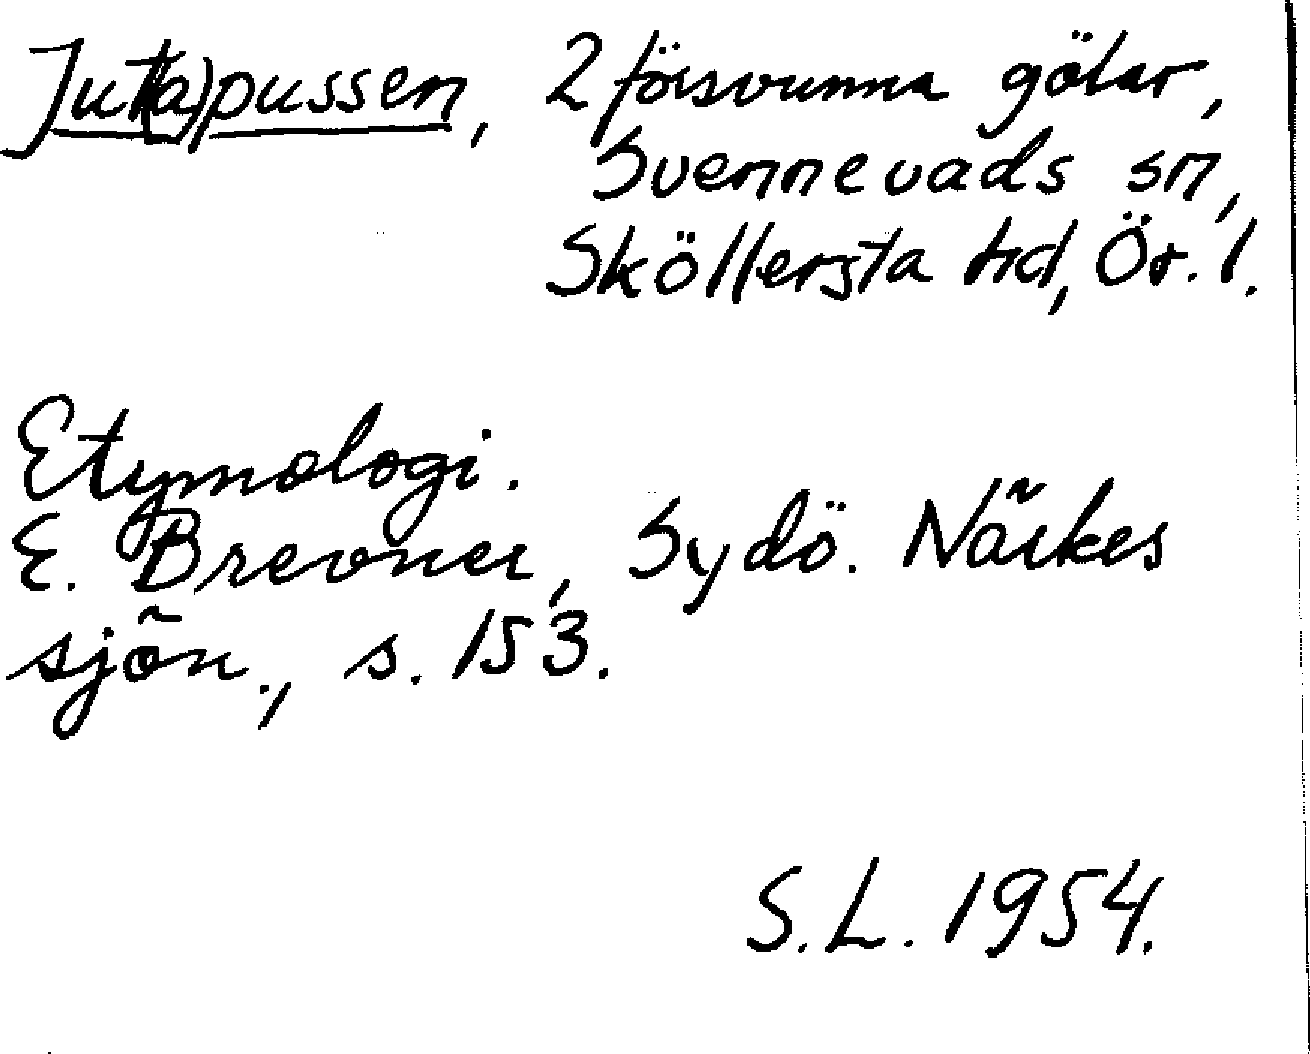 Jutt(a)pussen, 2 försvunna gölar,
Svennevads sn,
Sköllersta hd, Ör. l.
Etymologi.
E. Brevner, Sydö. Närkes
sjön., s. 153.
S.L. 1954.